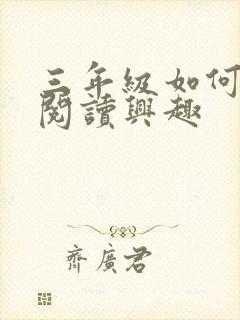 三年級如何
閱讀興趣
齊廣君